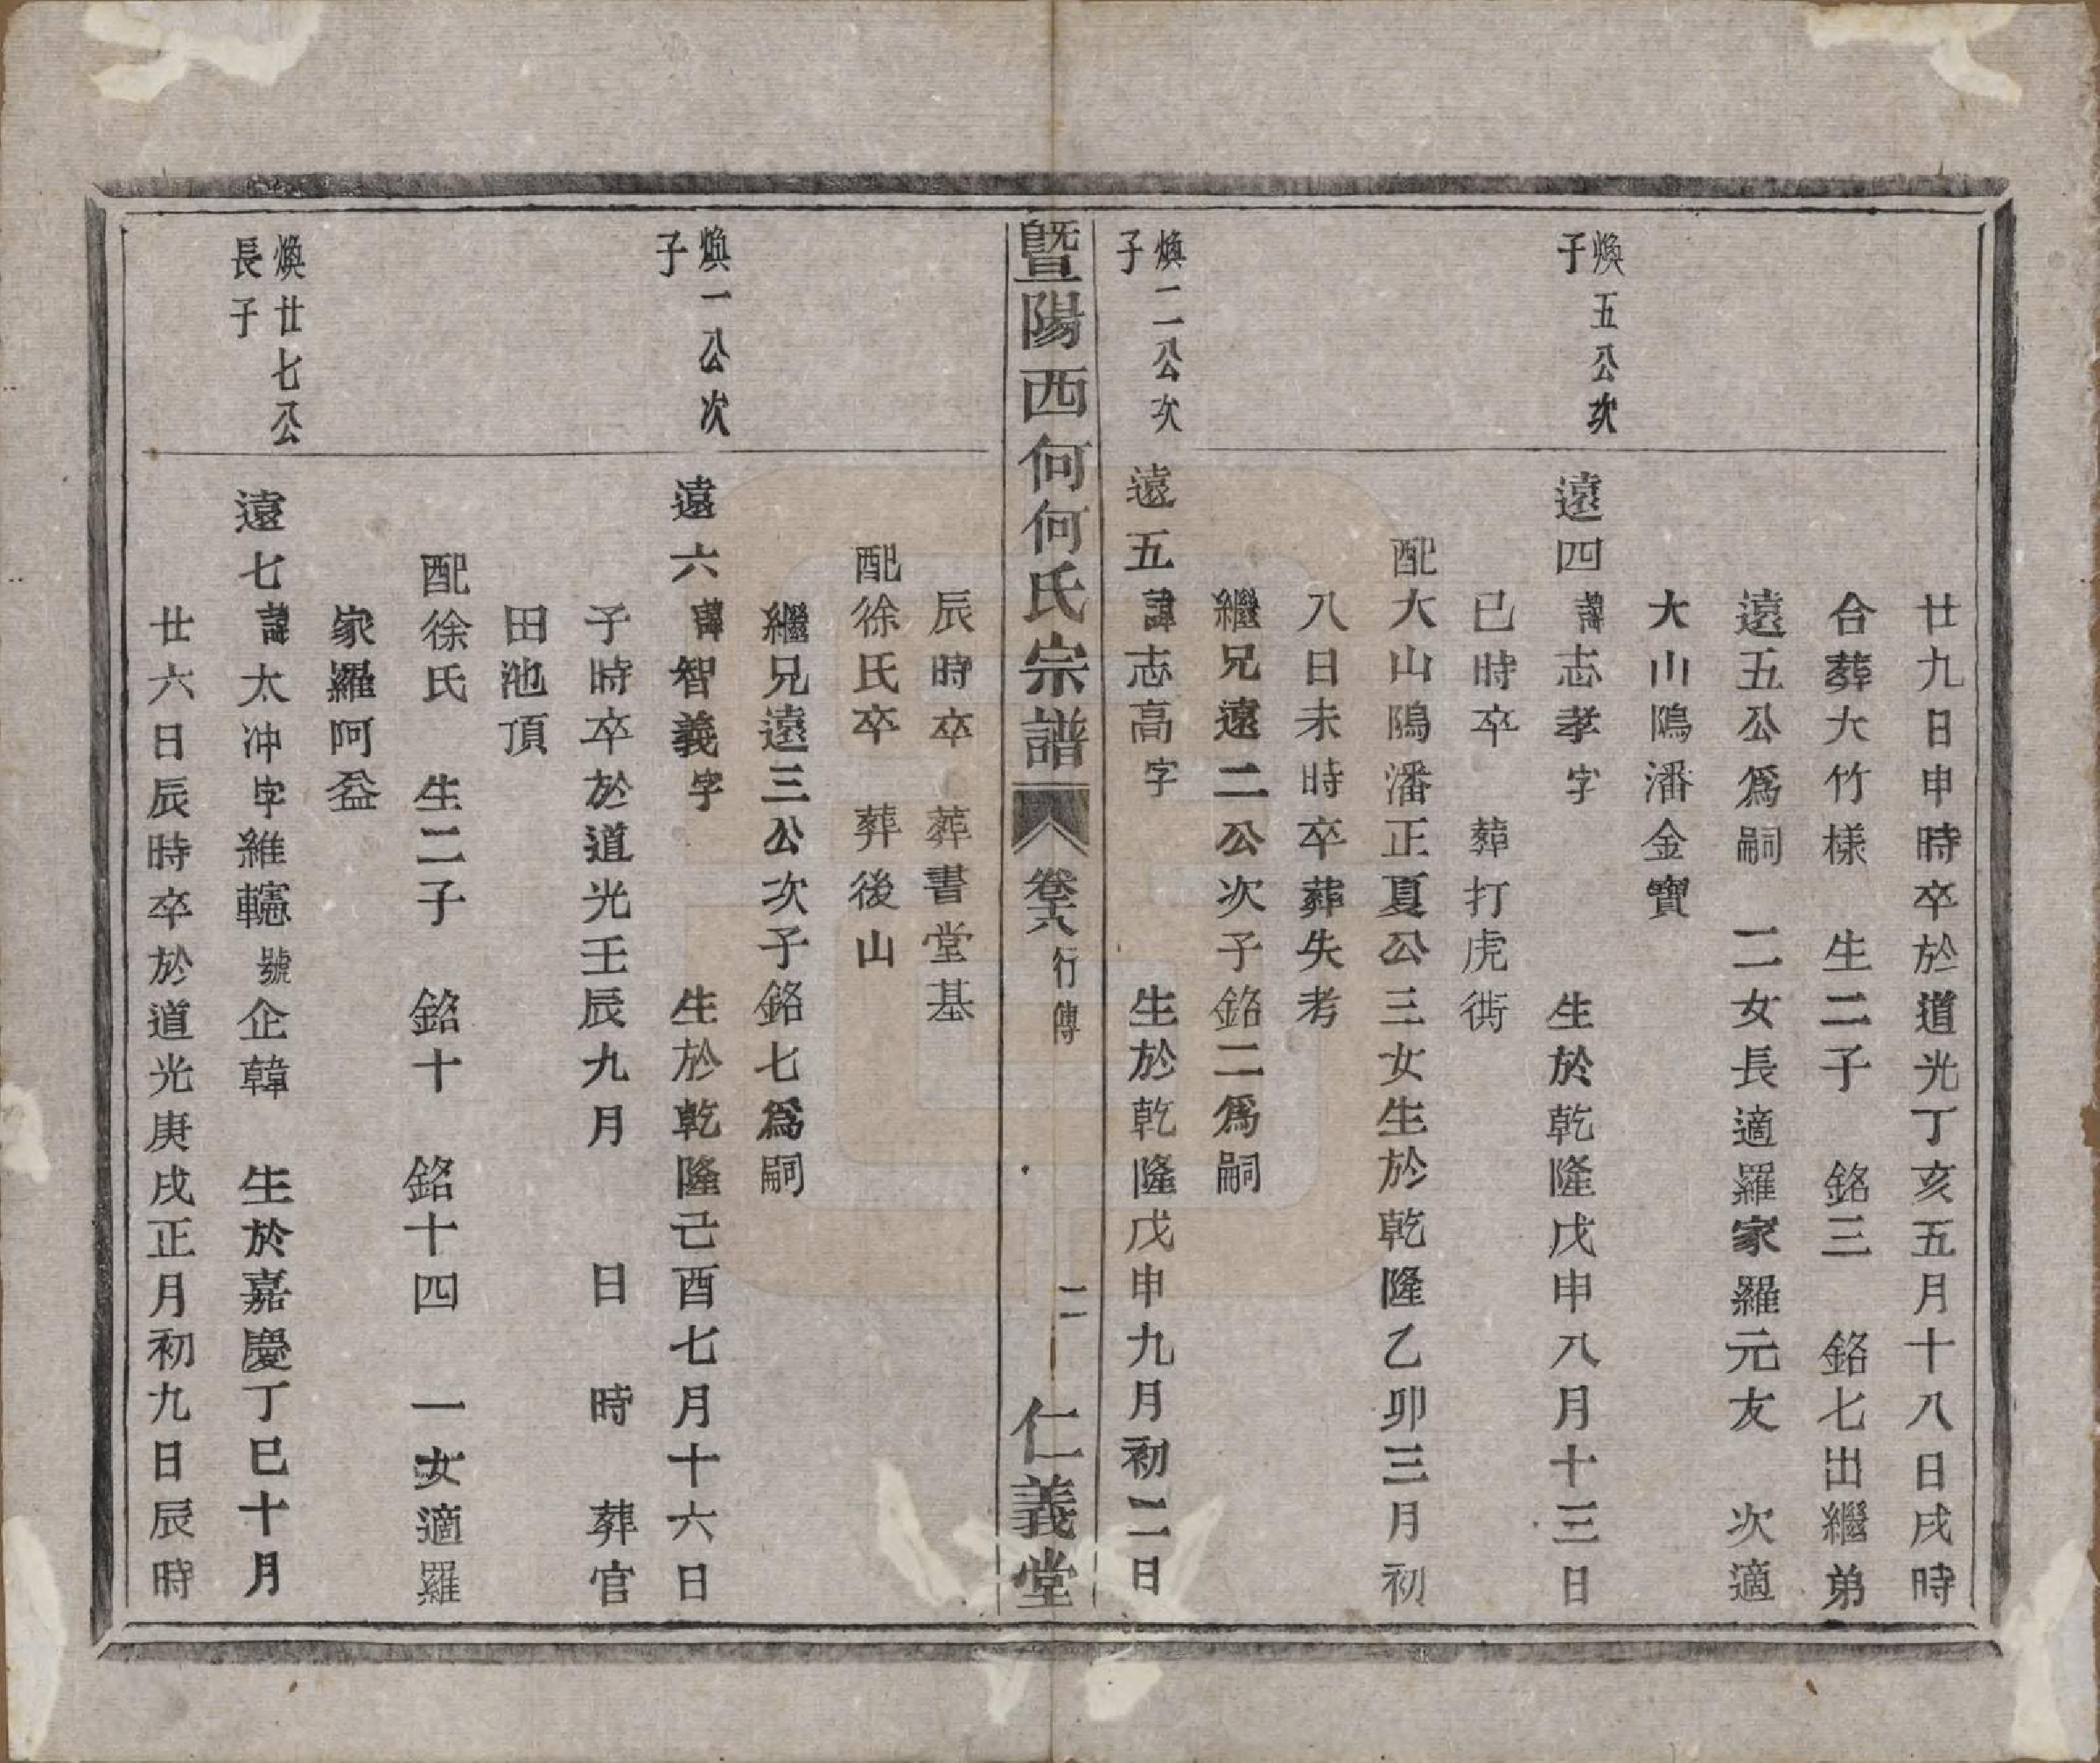 廿九日申時卒於道光丁亥五月十八日戌時
合葬大竹樣　生二子　銘三　銘七出繼弟
遠五公爲嗣　二女長適羅家羅元友　次適
大山鴎潘金寶
煥五公次子
遠四諱志孝字　生於乾隆戊申八月十三日
已時卒　葬打虎衖
配大山鴎潘正夏公三女生於乾隆乙卯三月初
八日未時卒葬失考
繼兄遠二公次子銘二爲嗣
煥二公次子
遠五諱志高字　生於乾隆戊申九月初二日
暨陽西何何氏宗譜　卷六　行傳　二　仁義堂
辰時卒　葬書堂基
配徐氏卒　葬後山
繼兄遠三公次子銘七爲嗣
煥一公次子
遠六諱智義字　生於乾隆己酉七月十六日
子時卒於道光壬辰九月　日　時　葬官
田池頂
配徐氏　生二子　銘十　銘十四　一女適羅
家羅阿益
煥廿七公長子
遠七諱太冲字維轤號企韓　生於嘉慶丁巳十月
廿六日辰時卒於道光庚戌正月初九日辰時